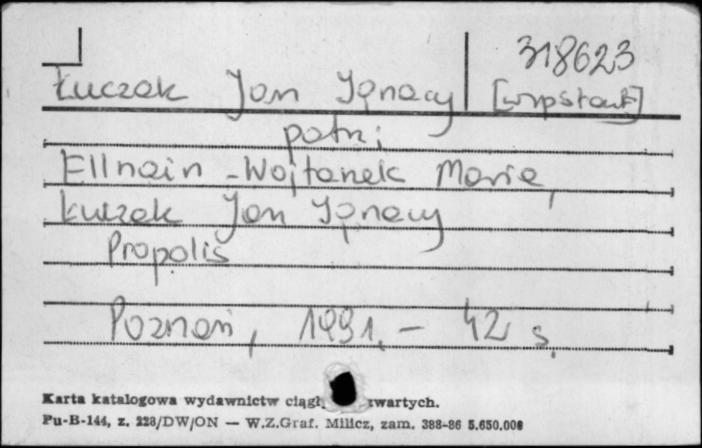 318623
Łuczak Jan Ignacy [współaut]
patrz
Ellnain-Wojtanek Maria,
Łuczak Jan Ignacy
Propolis
Poznań, 1991. - 42 s.
Karta katalogowa wydawnictw ciągł wartych.
Pu-B-144, z. 228/DW/ON — W.Z.Graf. Milicz, zam. 388-86 5.650.000